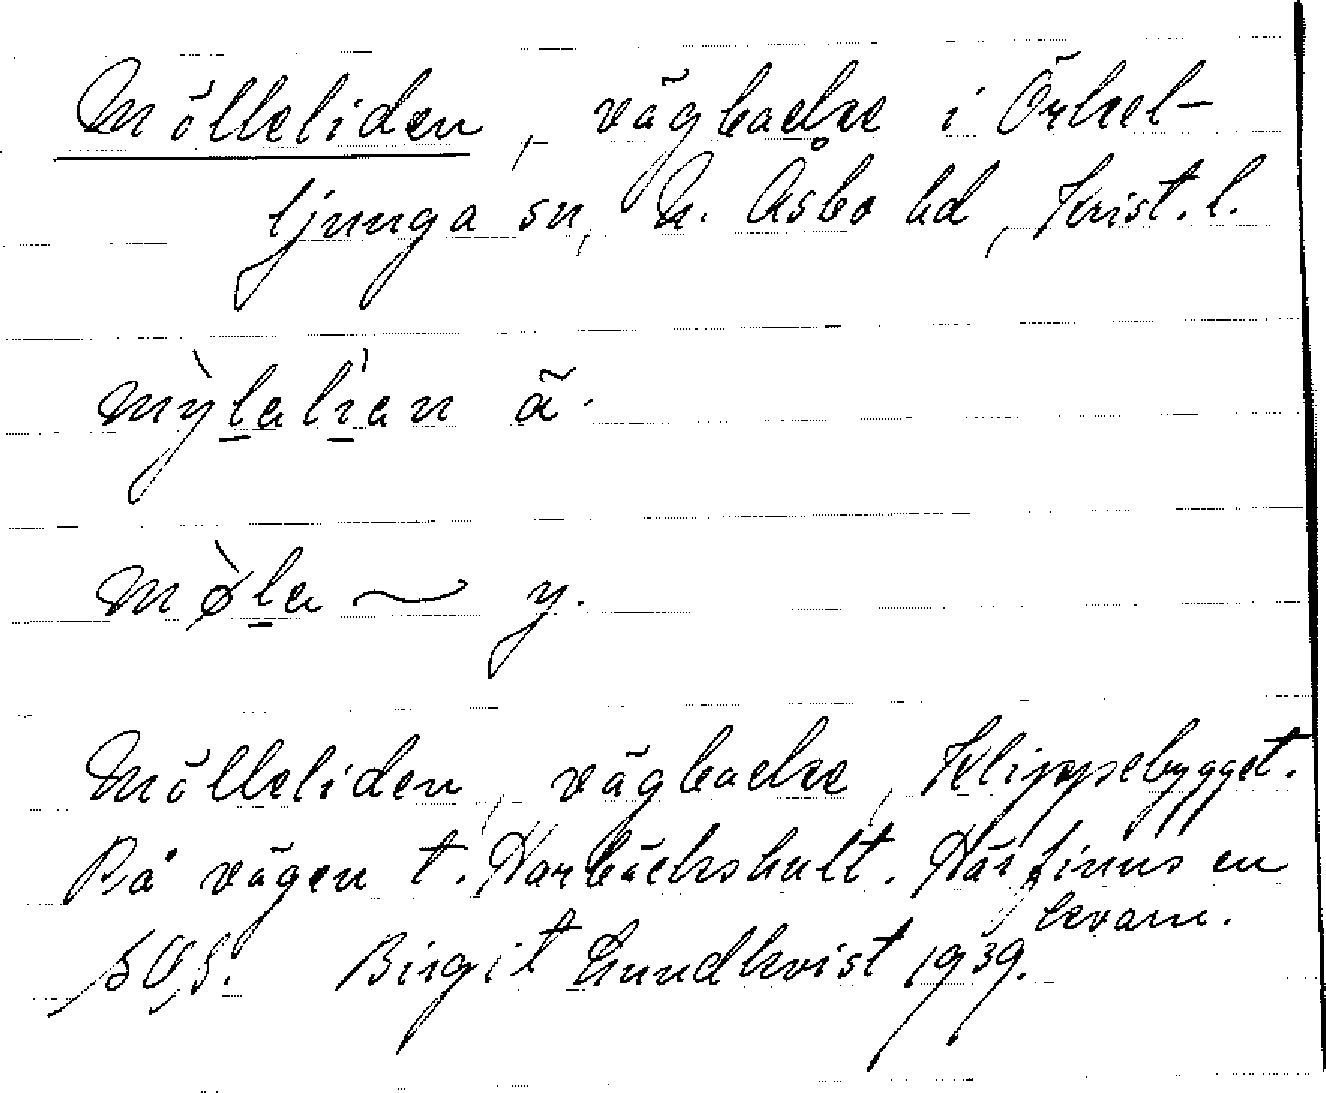 Mölleliden, vägbacke i Örkel-
ljunga sn, N. Åsbo hd, Krist. l.
mỳ̀lalian ä.
mø̀la ~ y.
Mölleliden, vägbacke, Klippebygget.
På vägen t. Harbäckshult. Här finns en
kvarn.
SOS. Birgit Lundkvist 1939.